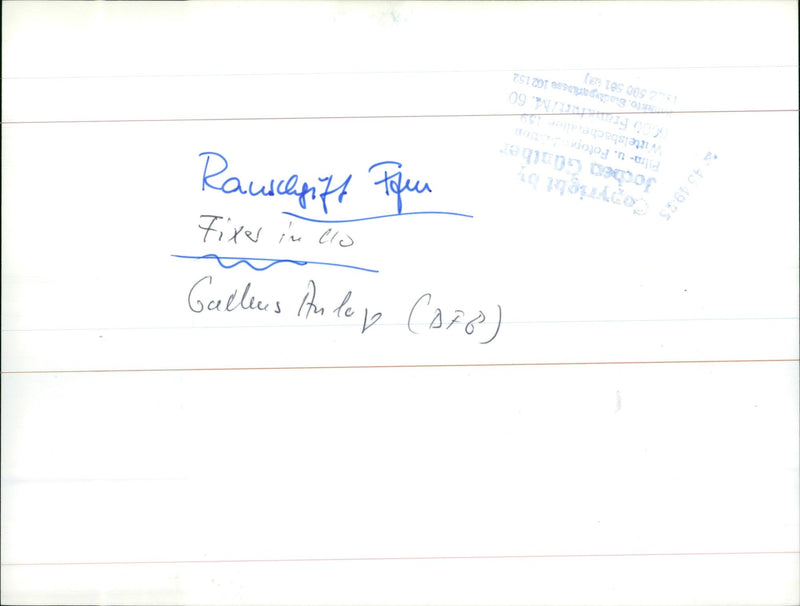 Rauschgift
Fixer in
Gallus Anlage (DFB)
Copyright by
Jochen Günther
Film- u. Fotoproduktion
Wittelsbacherallee 159
6000 Frankfurt/M. 60
Stadtsparkasse 102152